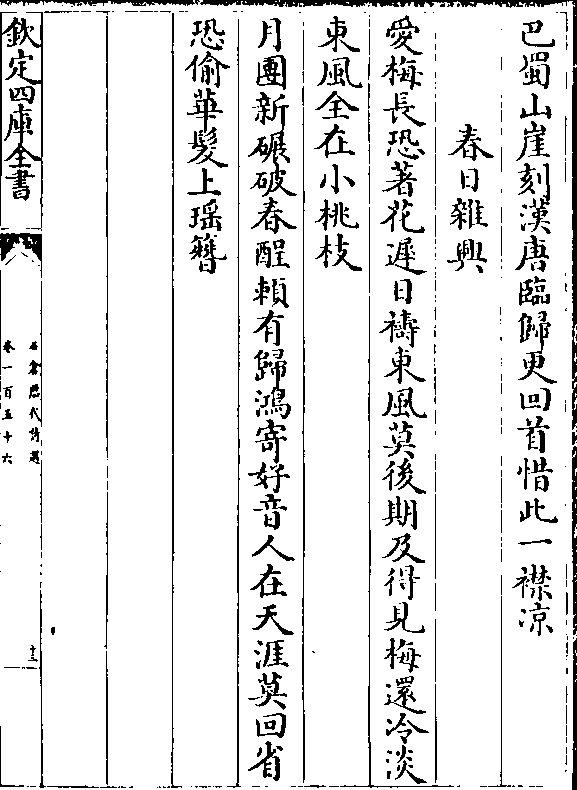 巴蜀山崖刻漢唐臨歸更回首惜此一襟凉
春日雜興
愛梅長恐著花遲日禱東風莫後期及得見梅還冷淡
東風全在小桃枝
月團新碾破春酲頼有歸鴻寄好音人在天涯莫回省
恐偷華髮上瑶簮
欽定四庫全書
石倉歴代詩選
卷一百五十六
十三